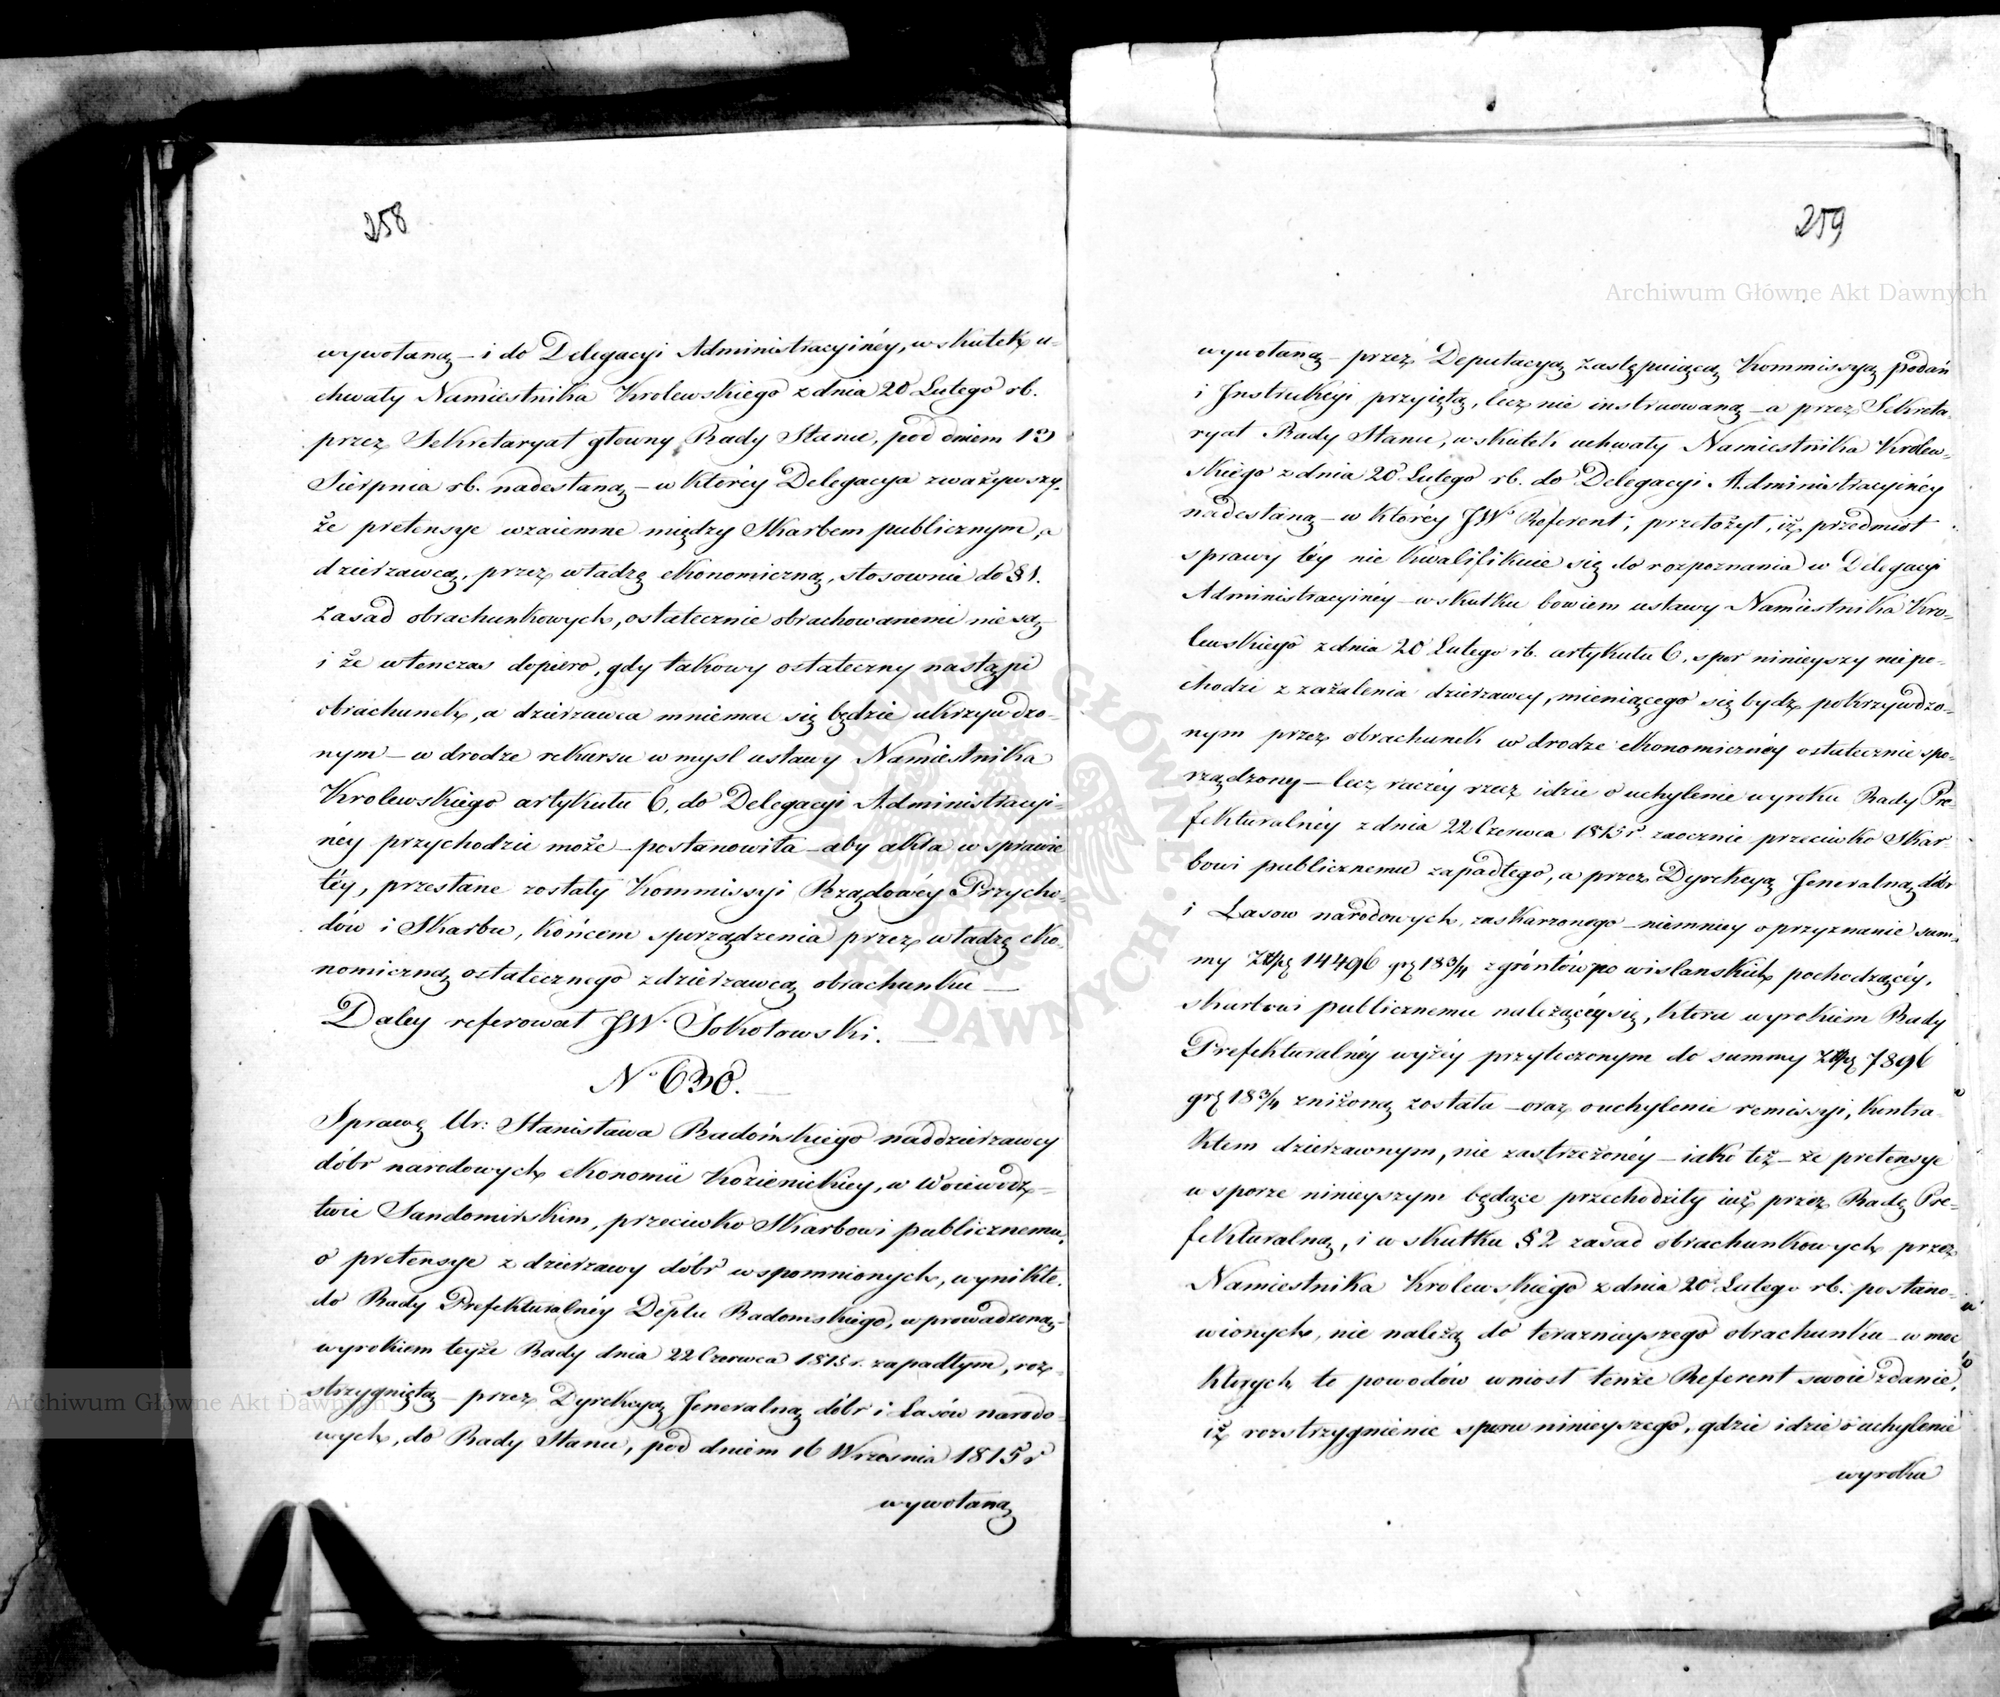 258
wywołaną – i do Delegacyi Administracyinéy, w skutek u-
chwały Namiestnika Krolewskiego z dnia 20 Lutego rb.
przez Sekretaryat głowny Rady Stanu, pod dniem 13
Sierpnia rb. nadesłaną – w któréy Delegacya zważywszy,
że pretensye wzaiemne między Skarbem publicznym, a
dzierzawcą, przez władzę ekonomiczną, stosownie do § 1.
zasad obrachunkowych, ostatecznie obrachowanemi nie są
i że wtenczas dopiero, gdy takowy ostateczny nastąpi
obrachunek, a dzierzawca mniemac się będzie ukrzywdzo-
nym – w drodze rekursu w mysl ustawy Namiestnika
Krolewskiego artykułu 6, do Delegacyi Administracyi-
néy przychodzić może – postanowiła – aby akta w sprawie
téy, przesłane zostały Kommissyi Rządowéy Przycho-
dów i Skarbu, końcem sporządzenia przez władzę eko-
nomiczną ostatecznego z dzierzawcą obrachunku –
Daley referował JW. Sokołowski. –
N° 630. –
Sprawę Ur: Stanisława Radońskiego naddzierzawcy
dóbr narodowych ekonomii Kozienickiey, w Woiewódz-
twie Sandomirskim, przeciwko Skarbowi publicznemu,
o pretensye z dzierzawy dóbr wspomnionych, wynikłe.
do Rady Prefekturalnéy Deptu Radomskiego, wprowadzoną –
wyrokiem teyże Rady dnia 22 Czerwca 1815 r. zapadłym, roz-
strzygniętą – przez Dyrekcyą Jeneralną dóbr i Lasów narodo-
wych, do Rady Stanu, pod dniem 16 Wrzesnia 1815 r
wywołaną
259
Archiwum Główne Akt Dawnych
wywołaną – przez Deputacyą zastępuiącą Kommissyą podań
i Instrukcyi przyiętą, lecz nie instruowaną – a przez Sekreta-
ryat Rady Stanu, w skutek uchwały Namiestnika Krolew-
skiego z dnia 20 Lutego rb. do Delegacyi Administracyinéy
nadesłaną – w któréy JW. Referent, przełożył, iż przedmiot
sprawy téy nie kwalifikuie się do rozpoznania w Delegacyi
Administracyinéy – w skutku bowiem ustawy Namiestnika Kro-
lewskiego z dnia 20 Lutego rb. artykułu 6, spor ninieyszy nie po-
chodzi z zażalenia dzierzawcy, mieniącego się bydź pokrzywdzo-
nym przez obrachunek w drodze ekonomicznéy ostatecznie spo-
rządzony – lecz raczéy rzecz idzie o uchylenie wyroku Rady Pre-
fekturalnéy z dnia 22 Czerwca 1815 r. zaocznie przeciwko Skar-
bowi publicznemu zapadłego, a przez Dyrekcyą Jeneralną dóbr
i Lasow narodowych, zaskarzonego – niemniey o przyznanie sum-
my Złp 14496 gr 18 3/4 z gróntów powislanskich pochodzącéy,
Skarbowi publicznemu należącéy się, która wyrokiem Rady
Prefekturalnéy wyżéy przytoczonym do summy Złp 7896
gr 18 3/4 zniżoną została – oraz o uchylenie remissyi, kontra-
ktem dzierzawnym, nie zastrzeżonéy – iako też – że pretensye
w sporze ninieyszym będące przechodziły iuż przez Radę Pre-
fekturalną, i w skutku § 2 zasad obrachunkowych przez
Namiestnika Krolewskiego z dnia 20 Lutego rb. postano-
wionych, nie należą do teraznieyszego obrachunku – w moc
których to powodów wniosł tenże Referent swoie zdanie,
iż rozstrzygnienie sporu ninieyszego, gdzie idzie o uchylenie
wyroku
Archiwum Główne Akt Dawnych